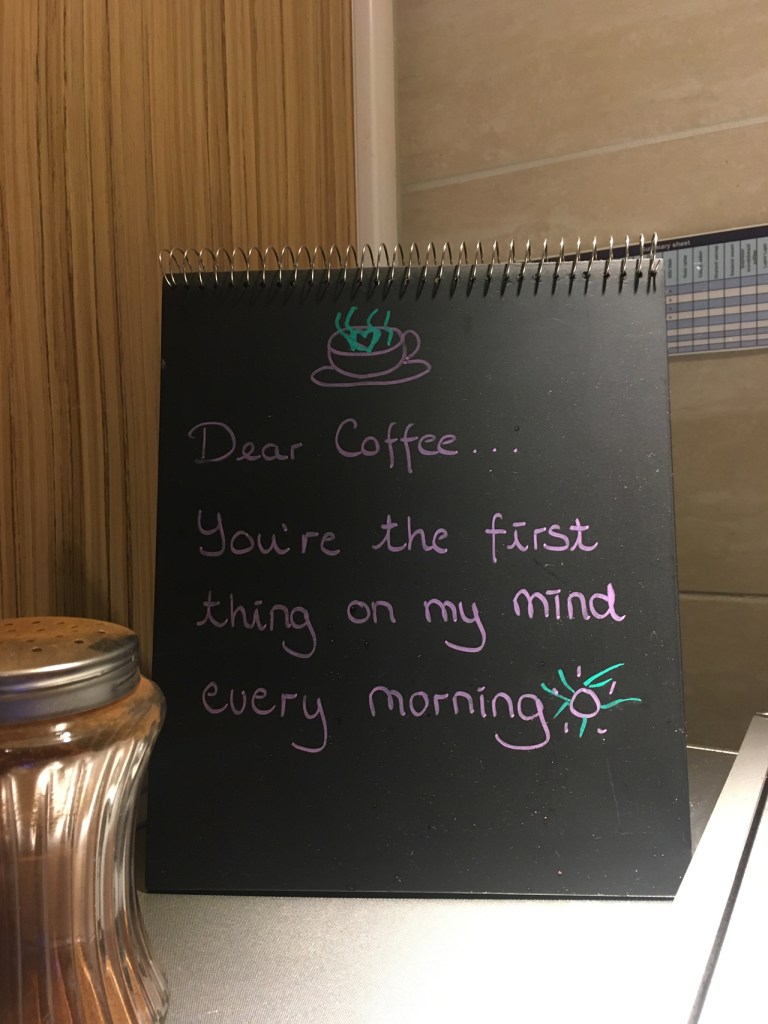 Dear Coffee...
You're the first
thing on my mind
every morning